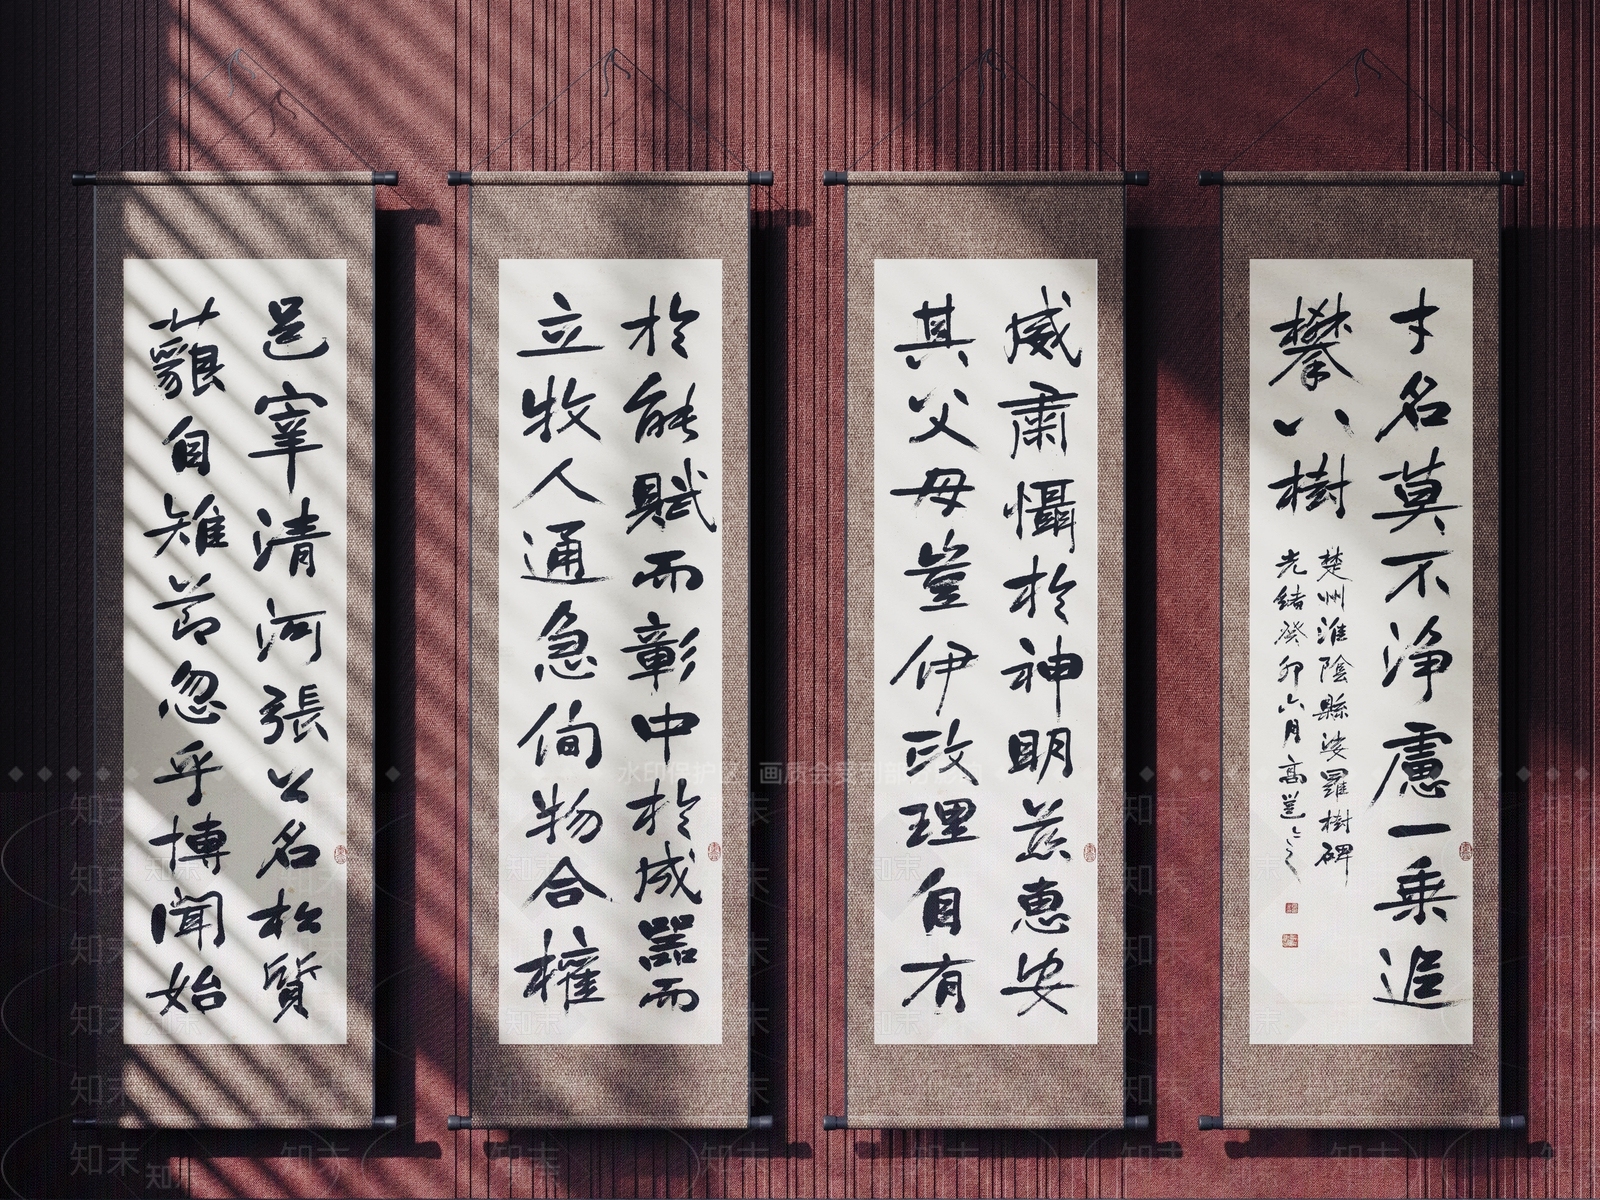 邑宰清河張公名松質
藐自雉節忽乎博聞始
於能賦而彰中於成器而
立牧人通急侚物合權
威肅懾於神明慈惠安
其父母豈伊政理自有
才名莫不淨慮一乘追
攀八樹
楚州淮陰縣娑羅樹碑
光緒癸卯六月高邕之
水印保护区 画质会受到部分
知末